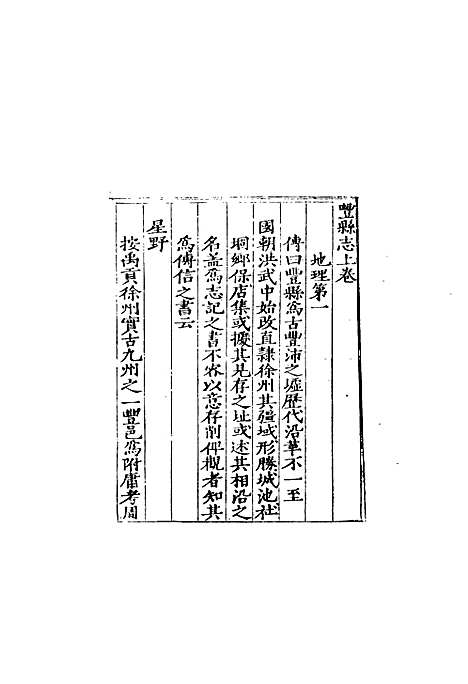 豐縣志上卷
地理第一
傳曰豐縣爲古豐沛之墟歷代沿革不一至
國朝洪武中始改直隸徐州其疆域形勝城池社
坰鄉保店集或據其見存之址或述其相沿之
名盖爲志記之書不容以意存削俾觀者知其
爲傳信之書云
星野
按禹貢徐州實古九州之一豐邑爲附庸考周